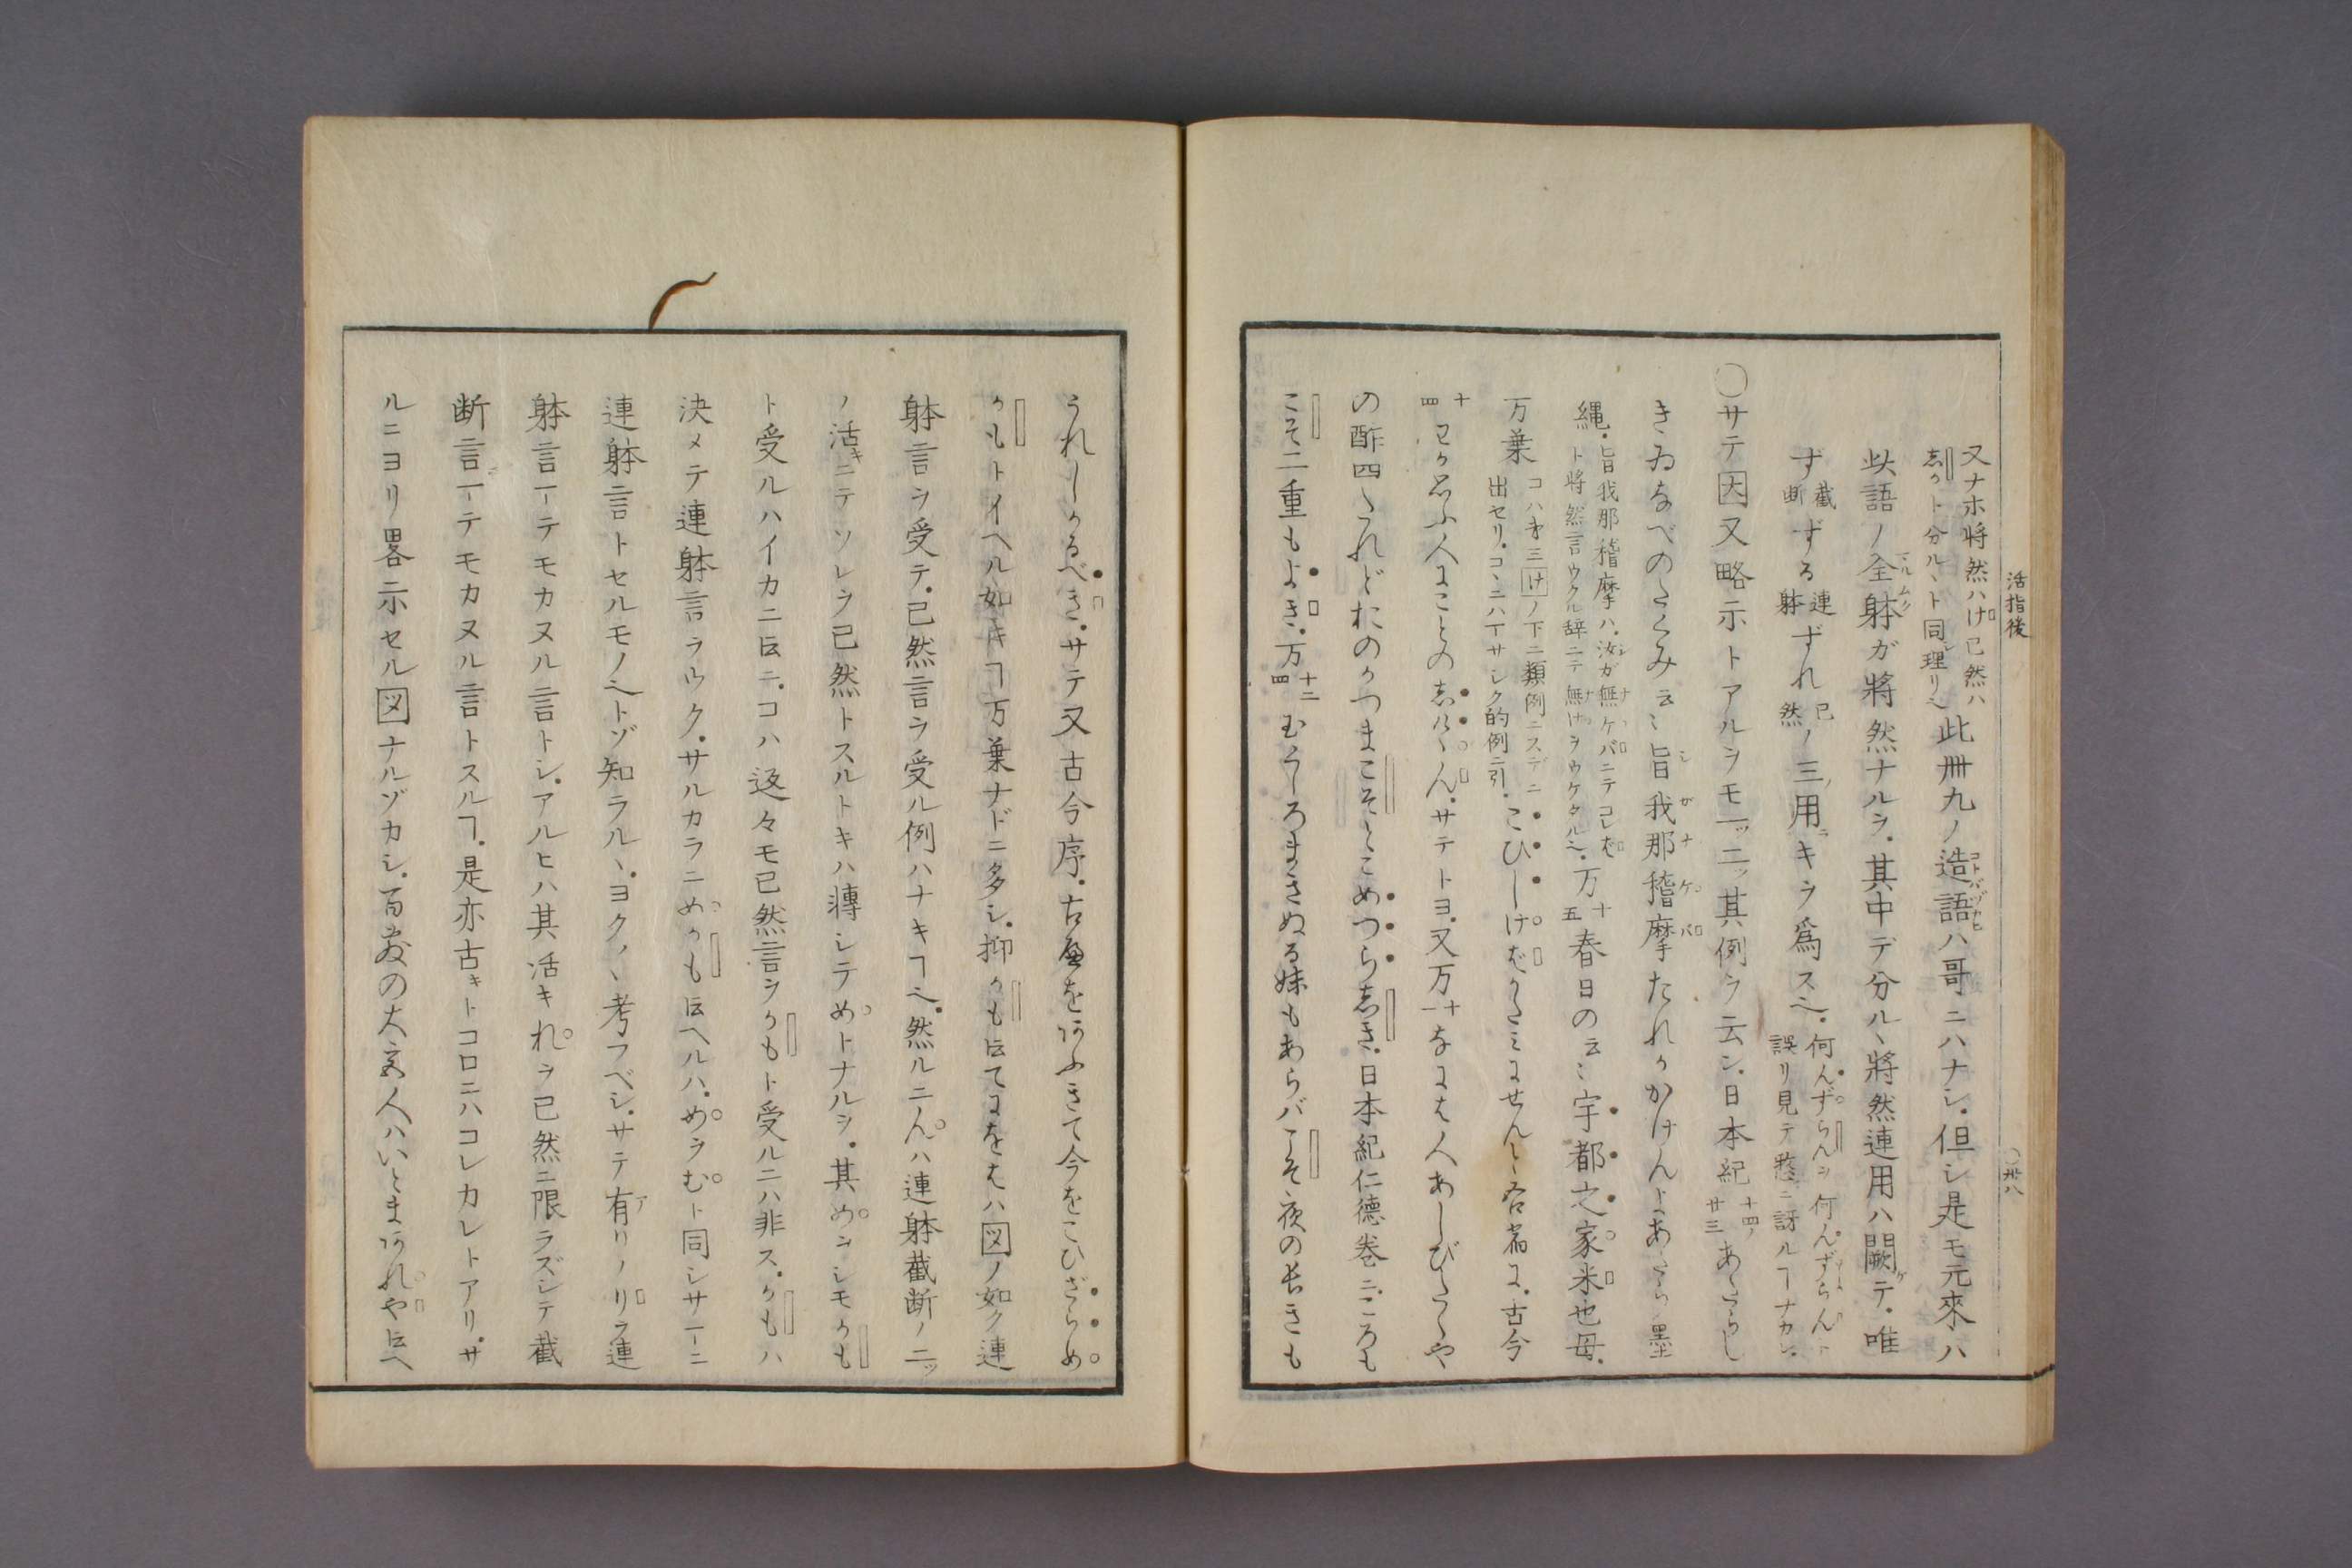 活指後
○卅八
又ナホ将然ハけ已然ハ
しかト分ルヽト同シ理リ也
此卌九ノ造語ハ哥ニハナシ.但シ是モ元來ハ
此語ノ全躰ガ將然ナルヲ.其中デ分ルヽ將然連用ハ闕テ.唯
ず截断ずる連躰ずれ已然ノ三用キヲ為ス也.
何んずらんヲ何んずらんト
誤リ見テ愁ニ訝ルヿナカレ.
○サテ因又略示トアルヲモ一ッ二ッ其例ヲ云ン.日本紀十四ノ廿三あたらし
きゐなべのたくみ云々旨我那稽摩たれかかけんよあたら墨
縄.
旨我那稽摩ハ.汝ガ無ケバニテコレば
ト将然言ウクル辞ニテ無けヲウケタル也.
万十五春日の云々宇都之家米也母.
万葉
コハ才三けノ下ニ類例ニスデニ
出セリ.コヽニハ下サシク的例ニ引.
こひしけばかたみにせんと 古今
十四わが思ふ人にことのしけゝん.サテトヨ.又万十一なには人あしびたくや
の酢四たれどおのがつまこそとこめつらしき.日本紀仁徳巻ニころも
こそ二重もよき.万十二四むらしろまきぬる妹もあらバこそ夜の長きも
うれしかるべき.サテ又古今序.古へをあふきて今をこひざらめ
かもトイヘル如キヿ万葉ナドニ多シ.抑かも伝てにをはハ図ノ如ク連
躰言ヲ受テ.已然言ヲ受ル例ハナキヿ也.然ルニん。ハ連躰截断ノ二ッ
ノ活キニテソレヲ已然トスルトキハ轉シテめトナルヲ.其めヲシモかも
ト受ルハイカニ伝ニ.コハ返々モ已然言ヲかもト受ルニハ非ス.かもハ
決メテ連躰言ヲウク.サルカラニめかも伝ヘルハ.めヲむト同シサーニ
連躰言トセルモノ也トゾ知ラルヽ.ヨクノヽ考フベシ.サテ有リノりヲ連
躰言ーテモカヌル言トシ.アルヒハ其活キれヲ已然ニ限ラズシテ截
断言ーテモカヌル言トスルヿ.是亦古キトコロニハコレカレトアリ.サ
ルニヨリ畧示セル図ナルゾカシ.百敷の大宮人ハいとまあれや伝ヘ